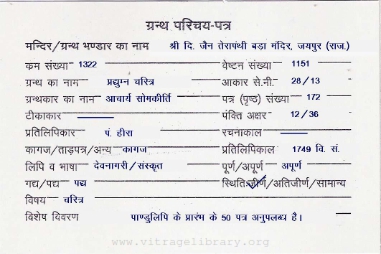 ग्रन्थ परिचय-पत्र
मन्दिर/ग्रन्थ भण्डार का नाम श्री दि. जैन तेरापंथी बडा मंदिर, जयपुर (राज.)
क्रम संख्या 1322 वेष्टन संख्या 1151
ग्रन्थ का नाम प्रद्युम्न चरित्र आकार से.मी. 28/13
ग्रन्थकार का नाम आचार्य सोमकीर्ति पत्र (पृष्ठ) संख्या 172
टीकाकार पंक्ति अक्षर 12/36
प्रतिलिपिकार पं. हीरा रचनाकाल
कागज/ताड़पत्र/अन्य कागज प्रतिलिपिकाल 1749 वि. सं.
लिपि व भाषा देवनागरी/संस्कृत पूर्ण/अपूर्ण अपूर्ण
गद्य/पद्य पद्य स्थिति-जीर्ण/अतिजीर्ण/सामान्य
विषय चरित्र
विशेष विवरण पाण्डुलिपि के प्रारंभ के 50 पत्र अनुपलब्ध है।
www.vitragelibrary.org